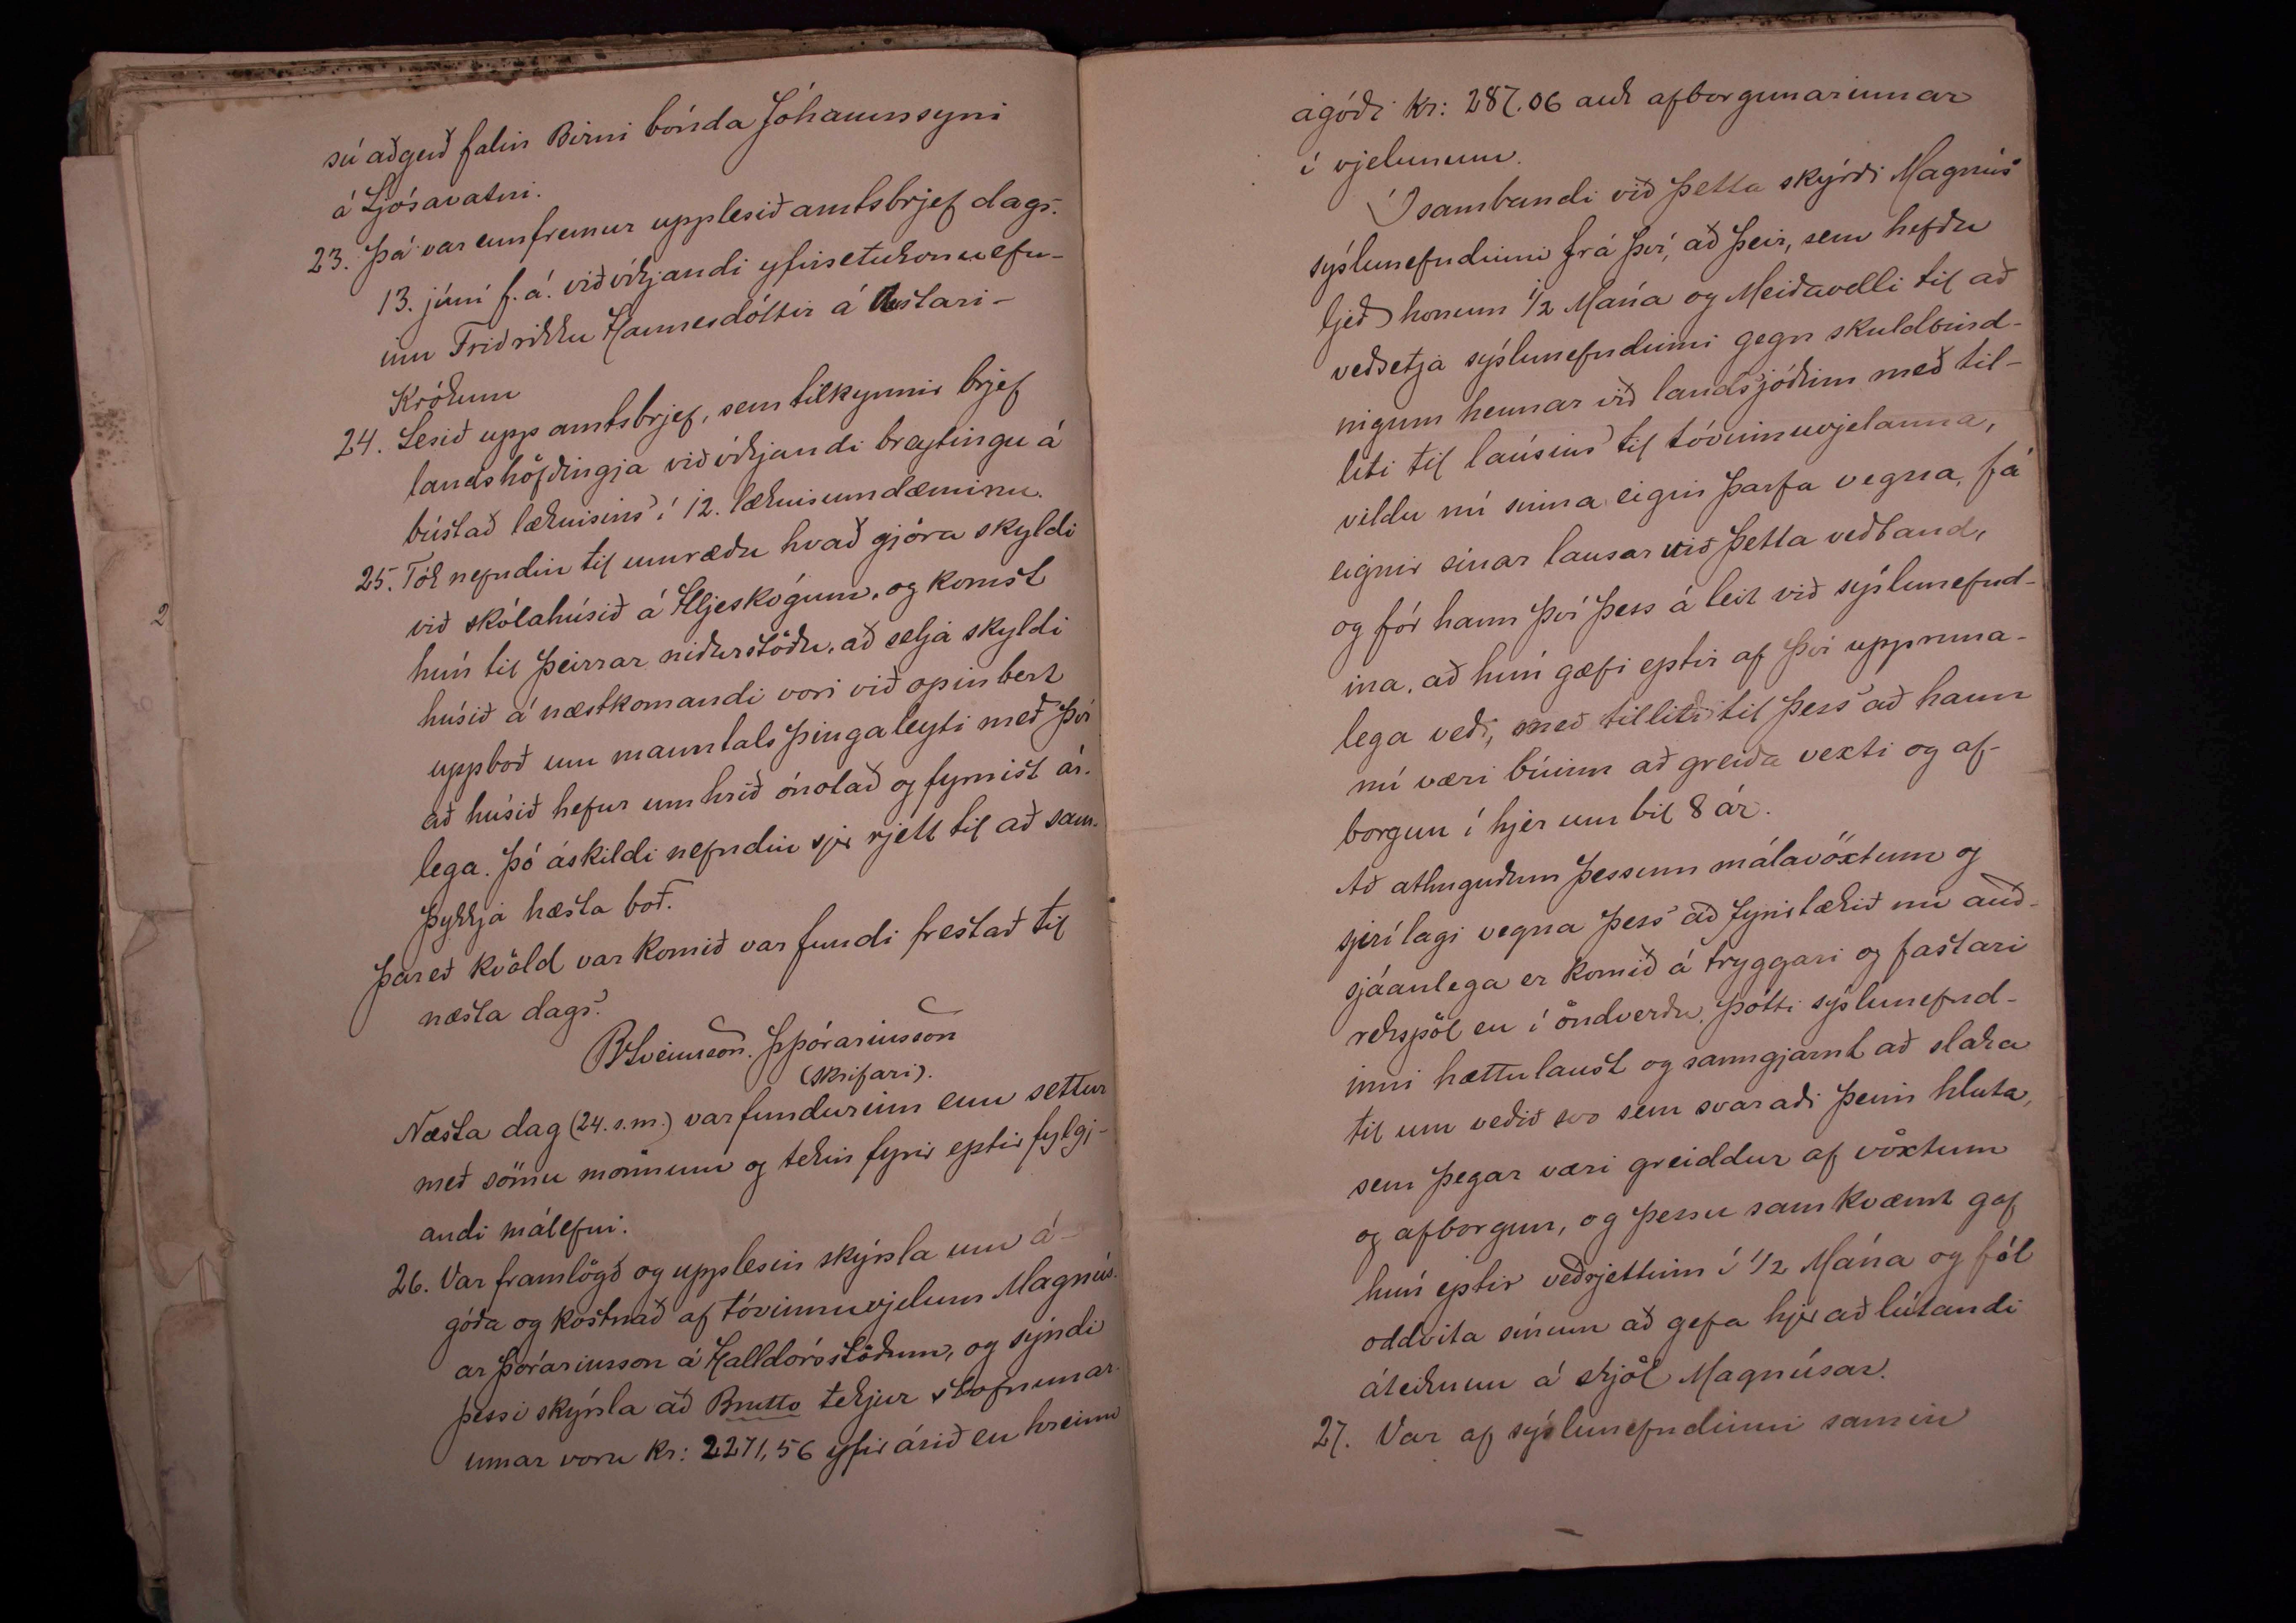 sú aðgerð falin Birni bónda Jóhannssyni
á Ljósavatni.
23. Þá var ennfremur upplesið amtsbrjef dags.
13. júní f.á. viðvíkjandi yfirsetukonuefn-
inu Friðrikku Hannesdóttir á Austari-
Krókum
24. Lesið upp amtsbrjef, sem tilkynnir brjef
landshöfðingja viðvíkjandi breytingu á
bústað læknisins í 12. læknisumdæminu.
25. Tók nefndin til umræðu hvað gjöra skyldi
við skólahúsið á Hljeskógum, og komst
hún til þeirrar niðurstöðu, að selja skyldi
húsið á næstkomandi vori við opinbert
uppboð um manntals þingaleyti með því
að húsið hefur um hríð ónotað og fyrnist ár-
lega. Þó áskildi nefndin sjer rjett til að sam-
þykkja hæsta boð.
Þareð kvöld var komið var fundi frestað til
næsta dags.
BSveinsson. ÞÞórarinsson
(skrifari).
Næsta dag (24. s.m.) var fundurinn enn settur
með sömu mönnum og tekin fyrir eptir fylgj-
andi málefni.
26. Var framlögð og upplesin skýrsla um á-
góða og kostnað af tóvinnuvjelum Magnús-
ar Þórarinsson á Halldórsstöðum, og sýndi
þessi skýrsla að Brutto tekjur stofnunar-
innar voru kr: 2271,56 yfir árið en hreinn
ágóði kr: 287.06 auk afborgunarinnar
í vjelunum.
Í sambandi við þetta skýrði Magnús
sýslunefndinni frá því, að þeir, sem hefðu
ljeð honum 1/2 Mána og Meiðavelli til að
veðsetja sýslunefndinni gegn skuldbind-
nigum hennar við landssjóðinn með til-
liti til lánsins til tóvinnuvjelanna,
vildu nú sinna eigin þarfa vegna, fá
eignir sínar lausar við þetta veðband,
og fór hann því þess á leit við sýslunefnd-
ina, að hún gæfi eptir af því uppruna-
lega veði, með tilliti til þess að hann
nú væri búinn að greiða vexti og af-
borgun í hjer um bil 8 ár.
Að athuguðum þessum málavöxtum og
sjerílagi vegna þess að fyrirtækið nú auð-
sjáanlega er komið á tryggari og fastari
rekspöl en í öndverðu, þótti sýslunefnd-
inni hættulaust og sanngjarnt að slaka
til um veðið svo sem svaraði þeim hluta,
sem þegar væri greiddur af vöxtum
og afborgun, og þessu samkvæmt gaf
hún eptir veðrjettinn í 1/2 Mána og fól
oddvita sínum að gefa hjer að lútandi
áteiknun á skjöl Magnúsar.
27. Var af sýslunefndinni samin
2